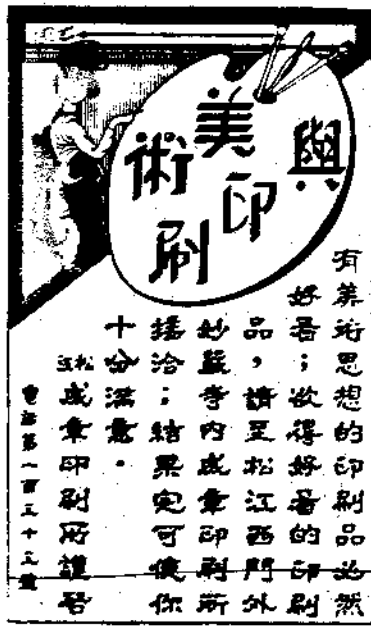 美術
與
印刷
有美術思想的印刷品必然
好看；欲得好看的印刷
品，請至松江西門外
妙嚴寺內成章印刷所
接洽；結果定可使你
十份滿意。
松江成章印刷所謹啓
電話第一百三十三號